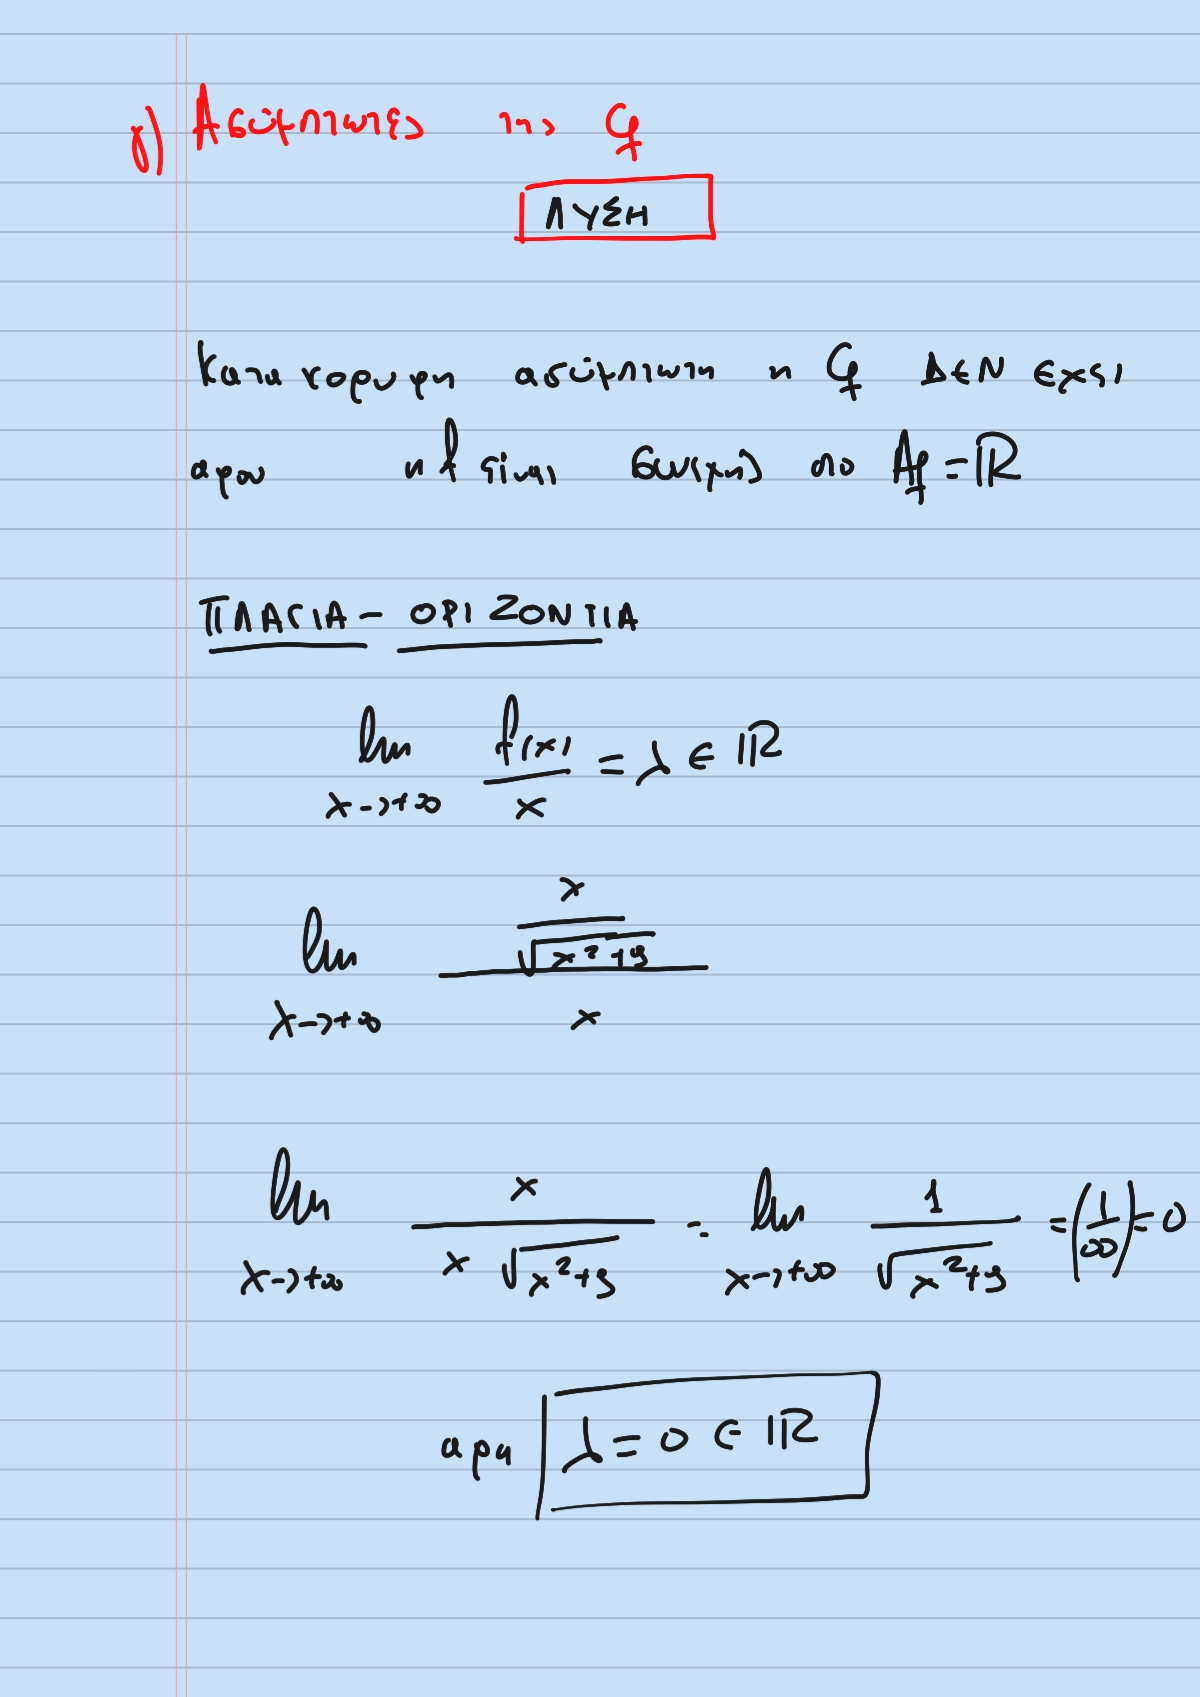 γ) Ασύμπτωτες της Cf
ΛΥΣΗ
Κατακορυφη ασύμπτωτη η Cf ΔΕΝ εχει
αφου η f είναι συνεχής στο Af = ℝ
ΠΛΑΓΙΑ - ΟΡΙΖΟΝΤΙΑ
lim x→+∞ f(x)/x = λ ∈ ℝ
lim x→+∞ (x/√(x²+9))/x
lim x→+∞ x/(x√(x²+9)) = lim x→+∞ 1/√(x²+9) = (1/∞) = 0
αρα λ = 0 ∈ ℝ